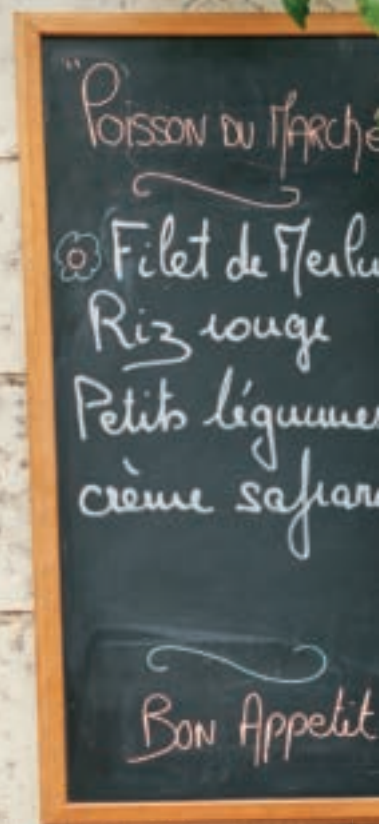 "Poisson du Marché
Filet de Merlu
Riz rouge
Petits légumes
crème safran
Bon Appetit